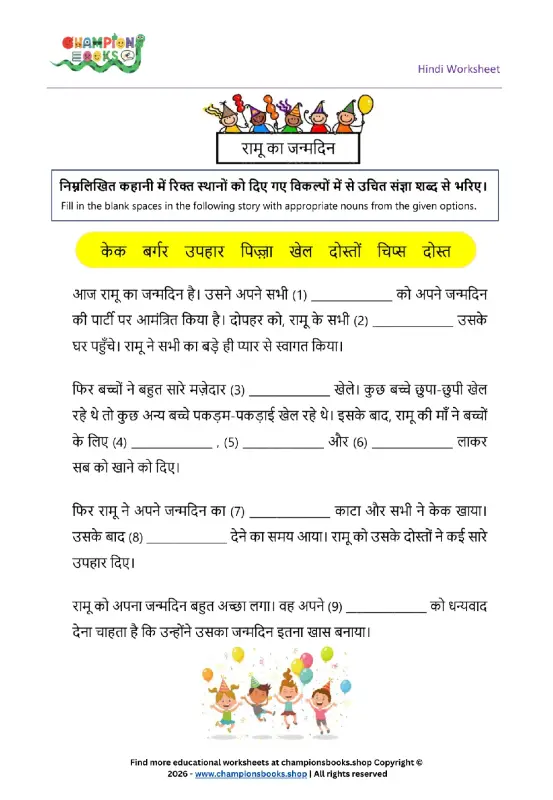 CHAMPION
BOOKS
Hindi Worksheet
रामू का जन्मदिन
निम्नलिखित कहानी में रिक्त स्थानों को दिए गए विकल्पों में से उचित संज्ञा शब्द से भरिए।
Fill in the blank spaces in the following story with appropriate nouns from the given options.
केक बर्गर उपहार पिज़्ज़ा खेल दोस्तों चिप्स दोस्त
आज रामू का जन्मदिन है। उसने अपने सभी (1) ____________ को अपने जन्मदिन
की पार्टी पर आमंत्रित किया है। दोपहर को, रामू के सभी (2) ____________ उसके
घर पहुँचे। रामू ने सभी का बड़े ही प्यार से स्वागत किया।
फिर बच्चों ने बहुत सारे मज़ेदार (3) ____________ खेले। कुछ बच्चे छुपा-छुपी खेल
रहे थे तो कुछ अन्य बच्चे पकड़म-पकड़ाई खेल रहे थे। इसके बाद, रामू की माँ ने बच्चों
के लिए (4) ____________ , (5) ____________ और (6) ____________ लाकर
सब को खाने को दिए।
फिर रामू ने अपने जन्मदिन का (7) ____________ काटा और सभी ने केक खाया।
उसके बाद (8) ____________ देने का समय आया। रामू को उसके दोस्तों ने कई सारे
उपहार दिए।
रामू को अपना जन्मदिन बहुत अच्छा लगा। वह अपने (9) ____________ को धन्यवाद
देना चाहता है कि उन्होंने उसका जन्मदिन इतना खास बनाया।
Find more educational worksheets at championsbooks.shop Copyright ©
2026 - www.championsbooks.shop | All rights reserved